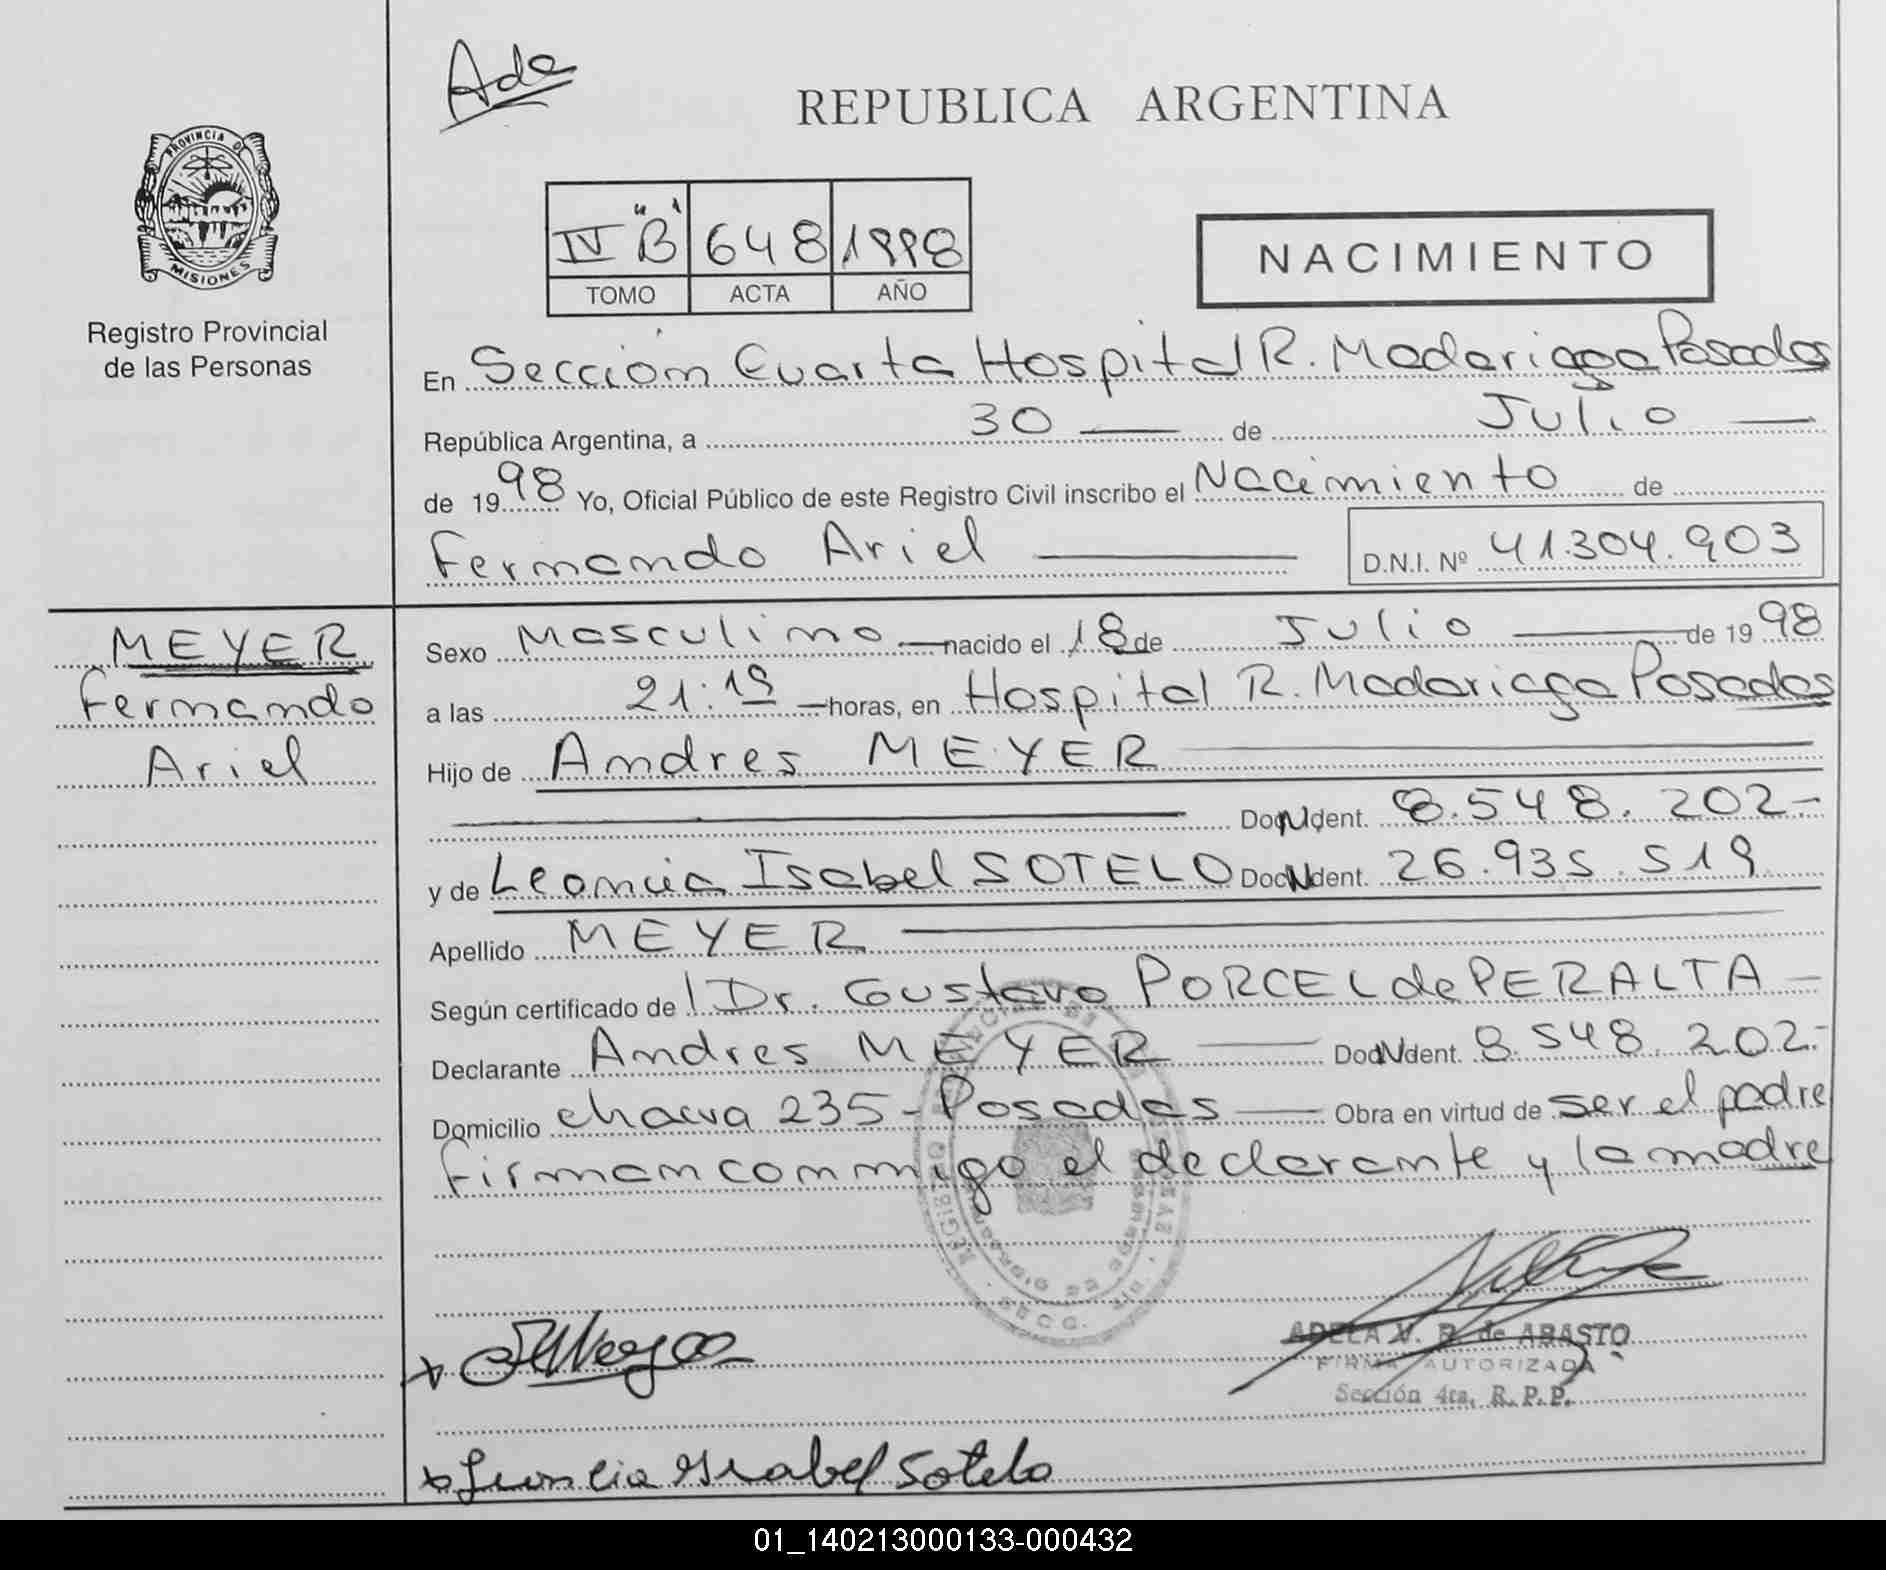 Ada
REPUBLICA ARGENTINA
PROVINCIA DE
MISIONES
Registro Provincial
de las Personas
IV "B" 648 1998
TOMO ACTA AÑO
NACIMIENTO
En Sección Cuarta Hospital R. Madariaga Posadas
República Argentina, a 30 de Julio
de 1998 Yo, Oficial Público de este Registro Civil inscribo el Nacimiento de
Fernando Ariel D.N.I. Nº 41.304.903
MEYER
Fernando
Ariel
Sexo Masculino nacido el 18 de Julio de 1998
a las 21:19 horas, en Hospital R. Madariaga Posadas
Hijo de Andres MEYER
Doc. Ident. 8.548.202-
y de Leoncia Isabel SOTELO Doc. Ident. 26.935.519
Apellido MEYER
Según certificado de Dr. Gustavo PORCEL de PERALTA
Declarante Andres MEYER Doc. Ident. 8.548.202-
Domicilio chacra 235 - Posadas Obra en virtud de ser el padre
firman conmigo el declarante y la madre
ADELA V. B. de ABASTO
FIRMA AUTORIZADA
Sección 4ta. R. P. P.
x Leoncia Isabel Sotelo
01_140213000133-000432